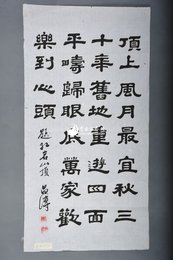 頂上風月最宜秋三
十年舊地重遊四面
平疇歸眼底萬家歡
樂到心頭